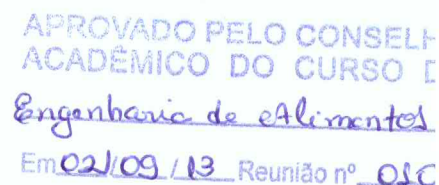 APROVADO PELO CONSELH
ACADÊMICO DO CURSO D
Engenharia de Alimentos
Em 02/09/13 Reunião nº 010